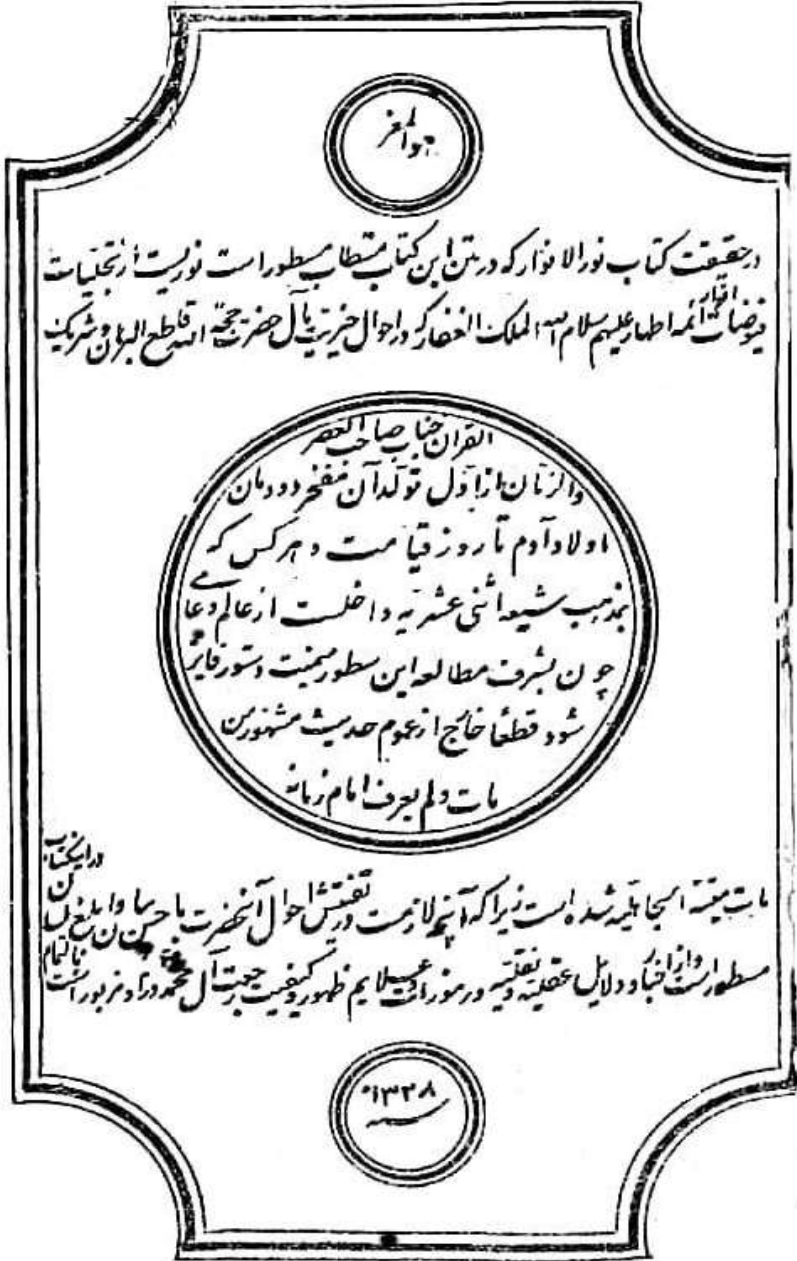 هوالمعز
در حقیقت کتاب نور الانوار که در متن این کتاب مستطاب مسطور است نوریست از تجلیات
فیوضات آثار ائمه اطهار علیهم سلام الله الملک الغفار که در احوال خیریت مآل حضرت حجة الله قاطع البرهان و شریک
القران جناب صاحب العصر
والزمان از اول تولد آن مفخر دودمان
اولاد آدم تا روز قیامت و هر کس که
بمذهب شیعه اثنی عشریه داخلست از عالم و عامی
چون بشرف مطالعه این سطور میمنت دستور فایز
شود قطعا خارج از عموم حدیث مشهور من
مات ولم یعرف امام زمانه
مات میتة الجاهلیه شده است زیرا که آنچه لازمست در تفتیش احوال آنحضرت با حسن بیان و ابلغ لسان در این کتاب
مسطور است و از اخبار و دلایل عقلیه و نقلیه و رموزات و علایم ظهور و کیفیت رجعت آل محمد در او مزبور است
۱۳۲۸